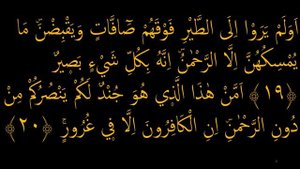 اَوَلَمْ يَرَوْا اِلَى الطَّيْرِ فَوْقَهُمْ صَافَّاتٍ وَيَقْبِضْنَۜ مَا
يُمْسِكُهُنَّ اِلَّا الرَّحْمٰنُۜ اِنَّهُ بِكُلِّ شَيْءٍ بَص۪يرٌ
﴿١٩﴾ اَمَّنْ هٰذَا الَّذ۪ي هُوَ جُنْدٌ لَكُمْ يَنْصُرُكُمْ مِنْ
دُونِ الرَّحْمٰنِۜ اِنِ الْكَافِرُونَ اِلَّا ف۪ي غُرُورٍۚ ﴿٢٠﴾